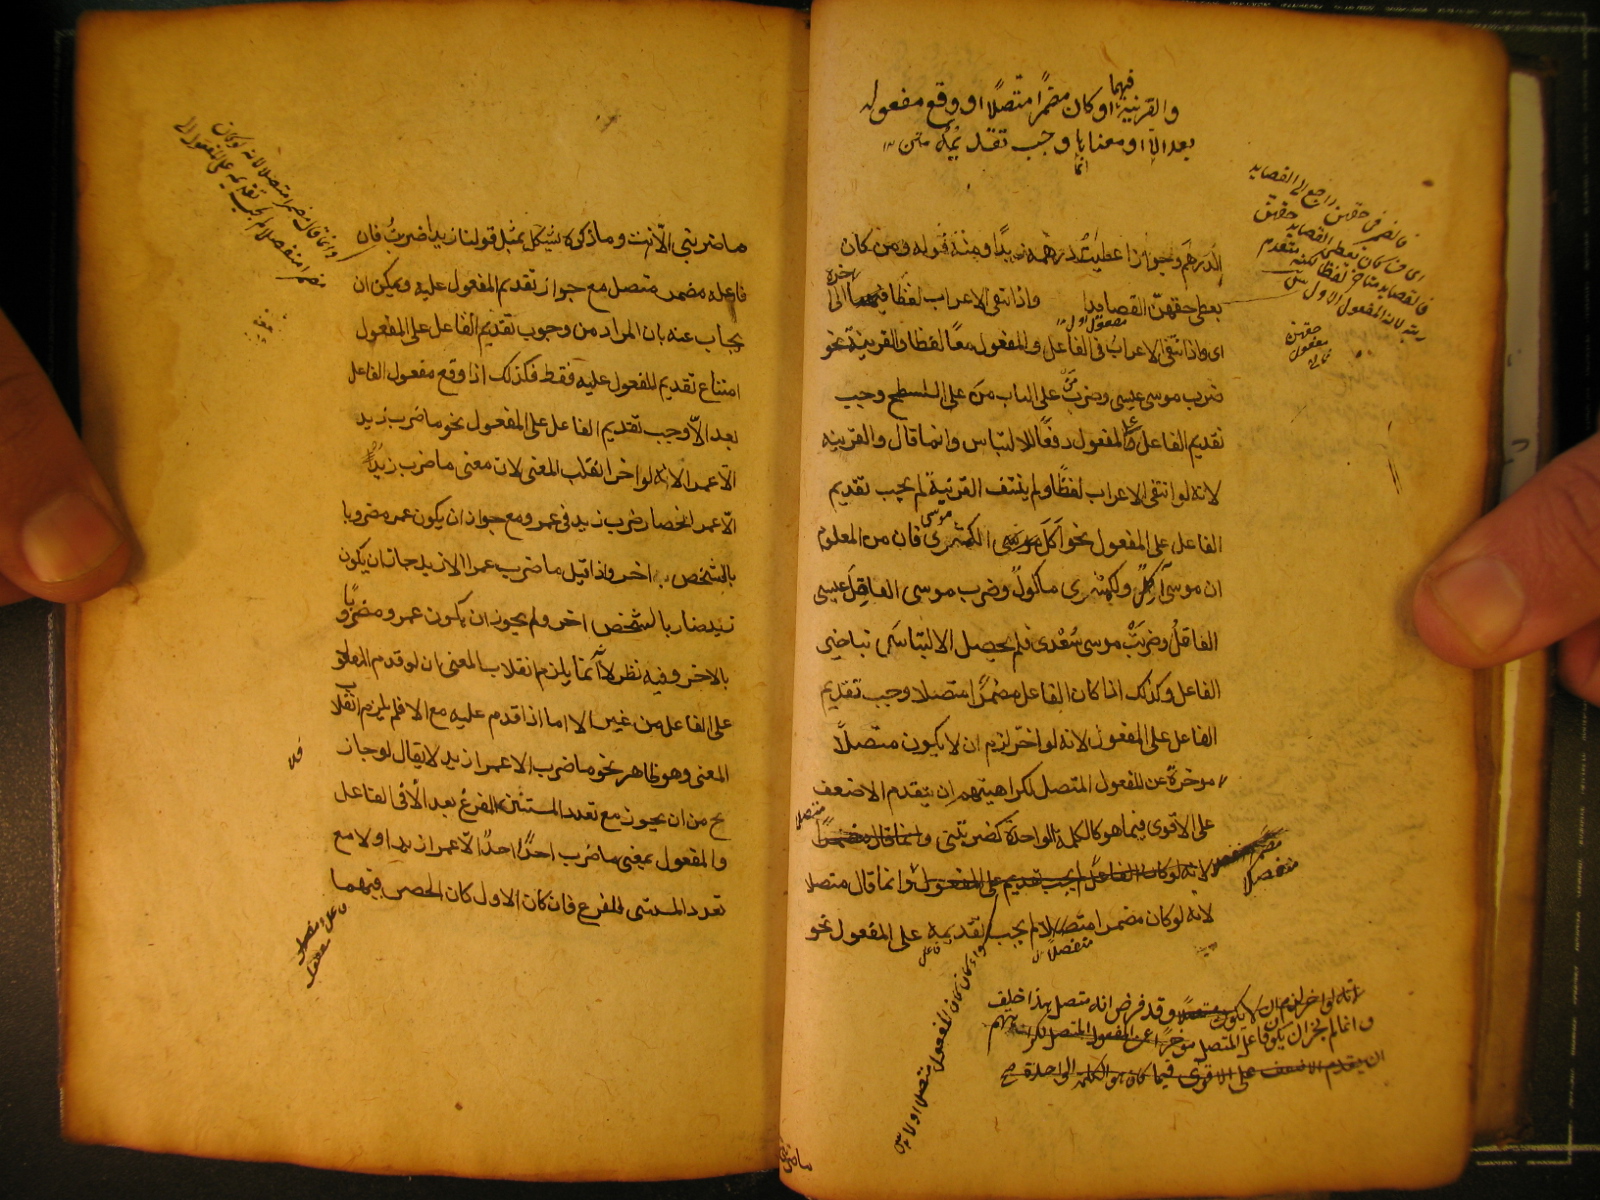 والقرينة فيهما او كان مضمرًا متصلًا او وقع مفعوله
بعد الا او معناها وجب تقديمه متن
الدرهم ونحو اذا عطيت درهمه زيدًا ومنه قوله ومن كان
يعطى حقهن القصايدا واذا انتفى الاعراب لفظا الى اخره
اى واذا انتفى الاعراب فى الفاعل والمفعول معًا لفظا والقرينة نحو
ضرب موسى عيسى وضرب من على الباب من على السطح وجب
تقديم الفاعل على المفعول دفعًا للالتباس وانما قال والقرينه
لانه لو انتفى الاعراب لفظًا ولم ينتف القرنية لم يجب تقديم
الفاعل على المفعول نحو اكل الكمثرى موسى فان من المعلوم
ان موسى آكل ولكمثرى ماكول وضرب موسى العاقل عيسى
الفاقل وضربت موسى سعدى فلم يحصل الالتباس
الفاعل وكذلك اذا كان الفاعل مضمرًا متصلا وجب تقديم
الفاعل على المفعول لانه لو اخر لزم ان لا يكون متصلًا
موخرة عن المفعول المتصل لكراهيتهم ان يتقدم الاضعف
على الاقوى فيما هو كالكلمة الواحدة كضربتنى وانما قال متصلا
لانه لو كان الفاعل لم يجب تقديم على المفعول وانما قال متصلا
لانه لو كان مضمرا منفصلا لم يجب تقديمه على المفعول نحو
لانه لو اخر لزم ان لا يكون متصلا وقد فرض انه متصل بهذا خلف
وانما لم يجز ان يكون فاعل المتصل موخرًا عن المفعول المتصل لكراهتهم
ان يتقدم الاضعف على الاقوى فيما كان هو الكلمة الواحدة صح
سواء كان المفعول متصلا اولا
فالضمير فى حقهن راجع الى القصايد
اى من كان يعطى القصايد حقهن
فالقصايد متاخر لفظا لكنه متقدم
رتبة لانه المفعول الاول
حقهن
مفعول
ثانى
ما ضربنى الا انت وما ذكره يشكل بمثل قولنا زيدا ضربت فان
فاعله مضمر متصل مع جواز تقديم المفعول عليه ويمكن ان
يجاب عنه بان المراد من وجوب تقديم الفاعل على المفعول
امتناع تقديم المفعول عليه فقط فكذلك اذا وقع مفعول الفاعل
بعد الا وجب تقديم الفاعل على المفعول نحو ما ضرب زيد
الا عمرا لانه لو اخر انقلب المعنى لان معنى ما ضرب زيد
الا عمر انحصار ضرب زيد فى عمرو مع جواز ان يكون عمرو مضروبا
بالشخص اخر واذا قيل ما ضرب عمرا الا زيد جاز ان يكون
زيد ضاربا لشخص اخر ولم يجوز ان يكون عمرو مضروبًا
بالاخر وفيه نظر لانه انما يلزم انقلاب المعنى ان لو قدم المفعول
على الفاعل من غير الا اما اذا قدم عليه مع الا فلم يلزم انقلاب
المعنى وهو ظاهر نحو ما ضرب الا عمرا زيد لا يقال لو جاز
يح من ان يجوز مع تعدد المستثنى المفرغ بعد الا فى الفاعل
والمفعول بمعنى ما ضرب احدٌ احدًا الا عمرا زيد اولا مع
تعدد المستثنى المفرغ فان كان الاول كان الحصر فيهما
وانما قال مضمرا متصلا لانه لو كان
مضمرا منفصلا لم يجب تقديمه على المفعول